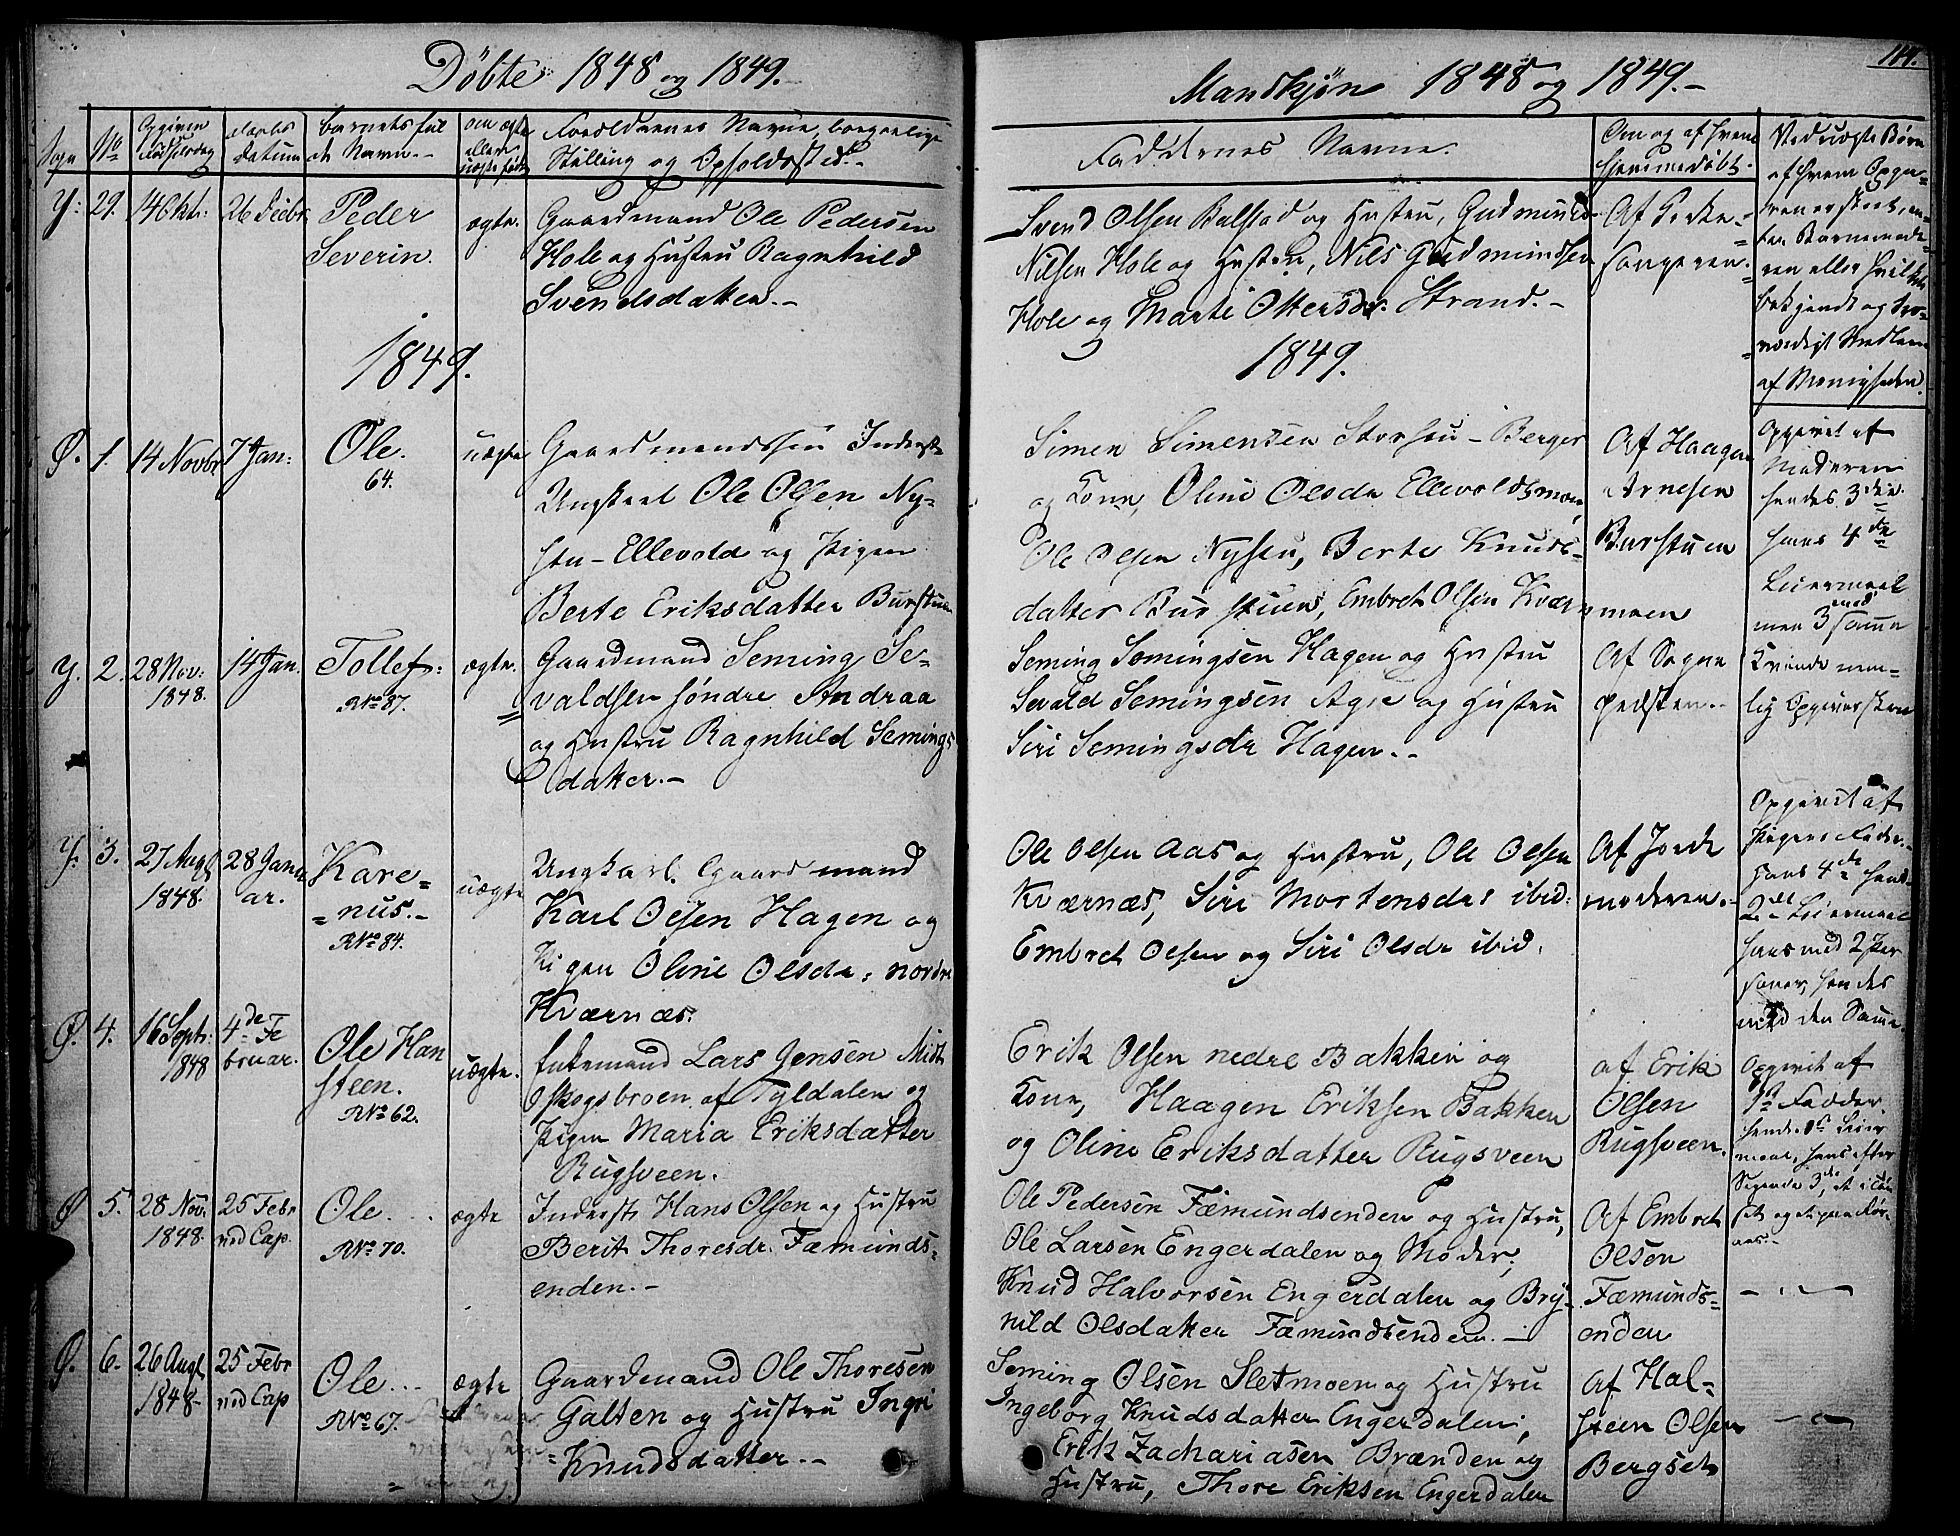 Döbte 1848 og 1849.
Sogn
No
Opgiven Födselsdag
Daabs Datum
Barnets fulde Navn.
om ægte eller uægte född
Forældrenes Navne, borgerlige
Stilling og Opholdssted.
Y. 29. 14 Oktr: 26 Decbr
Peder
Severin.
ægte.
Gaardmand Ole Pedersen
Hole og Hustru Ragnhild
Svendsdatter.-
1849.
Ø. 1. 14 Novbr 7 Jan:
Ole.
64.
uægte
Gaardmandssön Inderst
Ungkarl Ole Olsen Ny-
stu-Ellevold og Pigen
Berte Eriksdatter Burstuen
Y. 2. 28 Nov: 1848. 14 Jan.
Tollef:
R No 87.
ægte.
Gaardmand Seming Se-
valdsen söndre Andraa
og Hustru Ragnhild Semings
datter.-
Y. 3. 27 Augt 1848. 28 Janu
ar.
Kare=
=nus.-
R No 84.
uægte
Ungkarl. Gaardmand
Karl Olsen Hagen og
Pigen Oline Olsdr. nordre
Kværnæs.
Ø. 4. 16 Sept: 1848 4de Fe
bruar.
Ole Han
steen.
R No 62.
uægte.
Enkemand Lars Jensen Midt
skogsbroen af Tyldalen og
Pigen Maria Eriksdatter
Rugsveen.
Ø 5. 28 Nov. 1848. 25 Febr
ved Cap.
Ole.
R No 70.
ægte
Inderst Hans Olsen og Hustru
Berit Thoresdr. Fæmunds=
enden.-
Ø. 6. 26 Augt 1848- 25 Febr
ved Cap
Ole...
R No 67.
ægte
Gaardmand Ole Thoresen
Galten og Hustru Ingri
Knudsdatter.-
Mandkjön 1848 og 1849.-
Faddernes Navne.
Om og af hvem
hjemmedöbt.
Ved uægte Börn
af hvem Opgi-
velsen er skeet, en-
ten Barnemode-
ren eller hvilket
bekjendt og tro-
værdigt Medlem
af Menigheden.
Svend Olsen Balstad og Hustru, Gudmund
Nilsen Hole og Hustru, Nils Gudmundsen
Hole og Marte Ottersdr. Strand.-
Af Kirke=
sangeren.
1849.
Simen Simensen Storstu-Berger
og Kone, Oline Olsdr Ellevoldsmoen,
Ole Olsen Nystu, Berte Knuds-
datter Burstuen, Embret Olsen Kværnmoen
Af Haagen
Arnesen
Burstuen
Opgivet af
Moderen
hendes 3die
hans 4de
Leiermaal
men 3 med samme
Kvinde nem-
lig Opgiversken
Seming Semingsen Hagen og Hustru
Sevald Semingsen Agre og Hustru
Siri Semingsdr Hagen.-
Af Sogne
præsten.-
Ole Olsen Aas og Hustru, Ole Olsen
Kværnæs, Siri Mortensdr ibid.
Embret Olsen og Siri Olsdr ibid.
Af Jorde
moderen.-
Opgivet af
Pigens Fader.
hans 4de hend-
2det Leiermaal
hans med 2 Per
soner, hendes
med den Samme.
Erik Olsen nedre Bakken og
Kone, Haagen Eriksen Bakken
og Oline Eriksdatter Rugsveen
af Erik
Olsen
Rugsveen.
Opgivet af
1ste Fadder.
Ole Pedersen Fæmundsenden og Hustru,
Ole Larsen Engerdalen og Moder;
Knud Halvorsen Engerdalen og Bry-
nild Olsdatter Fæmundsenden.-
Af Embret
Olsen
Fæmunds=
enden
Seming Olsen Sletmoen og Hustru
Ingeborg Knudsdatter Engerdalen;
Erik Zachariasen Brænden og
Hustru, Thore Eriksen Engerdalen
Af Hal-
steen Olsen
Bergset